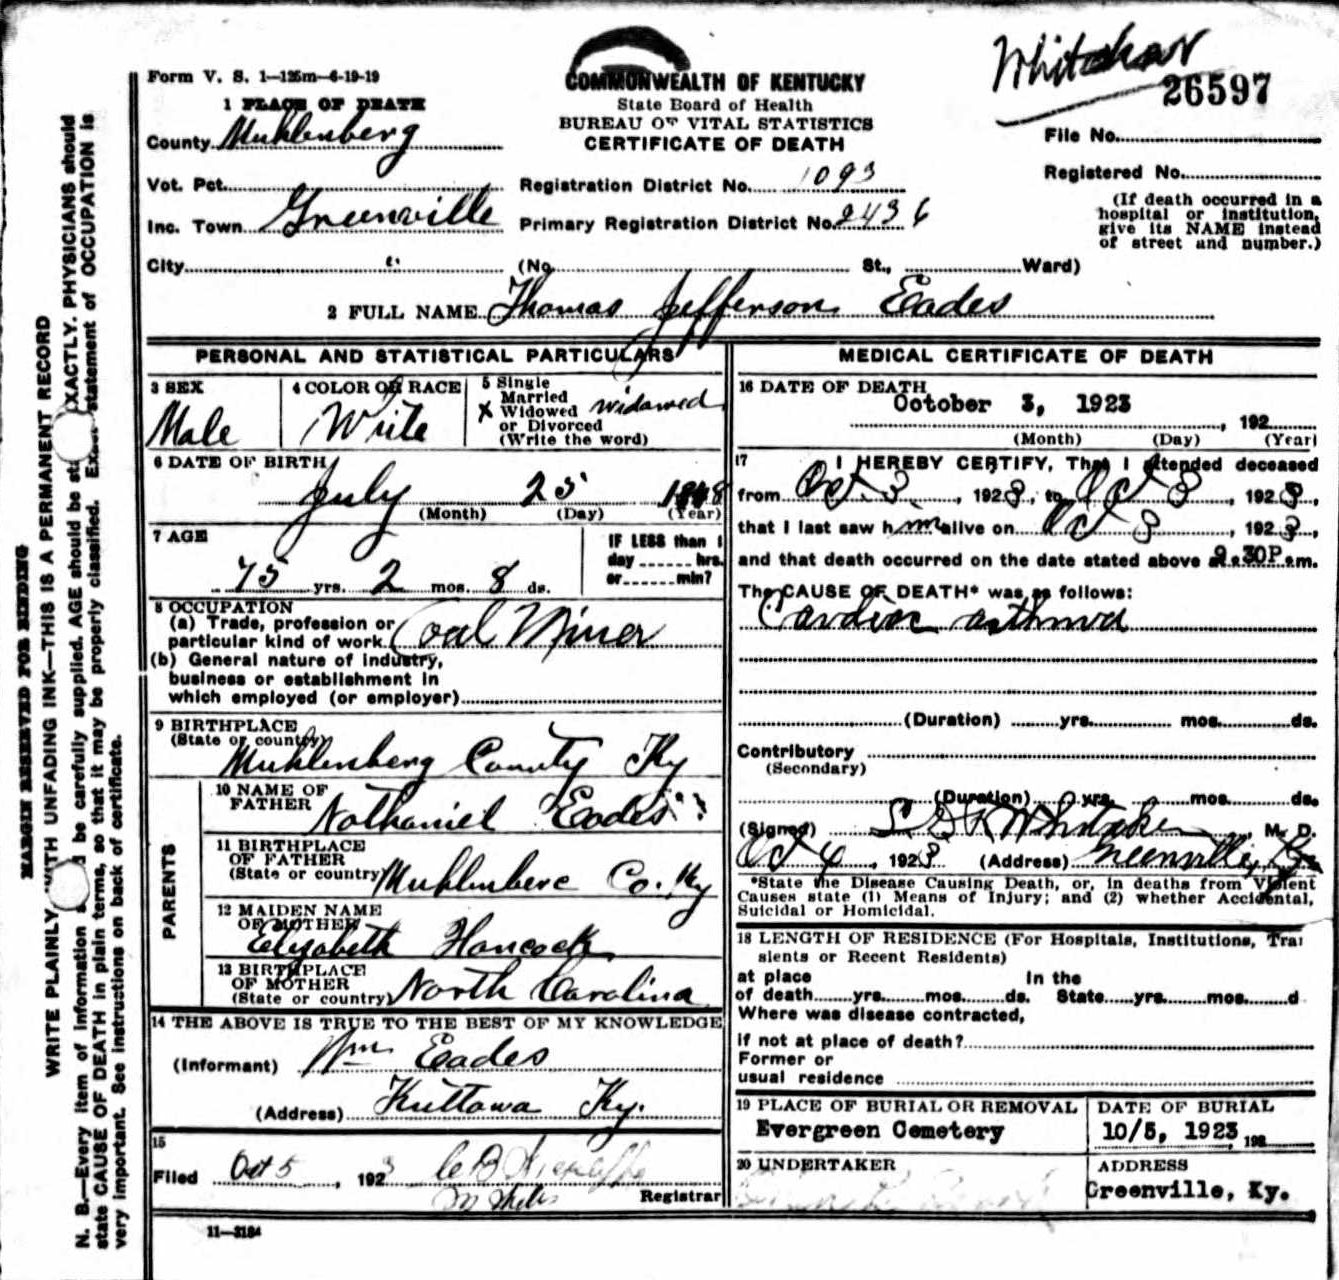 Whitaker
26597
Form V. S. 1—125m—6-19-19
COMMONWEALTH OF KENTUCKY
State Board of Health
BUREAU OF VITAL STATISTICS
CERTIFICATE OF DEATH
1 PLACE OF DEATH
County Muhlenberg
Vot. Pct.
Inc. Town Greenville
City (No St., Ward)
Registration District No. 1093
Primary Registration District No. 2436
File No.
Registered No.
(If death occurred in a
hospital or institution,
give its NAME instead
of street and number.)
2 FULL NAME Thomas Jefferson Eades
PERSONAL AND STATISTICAL PARTICULARS
3 SEX
Male
4 COLOR OR RACE
White
5 Single
Married
X Widowed widowed
or Divorced
(Write the word)
6 DATE OF BIRTH
July 25 1848
(Month) (Day) (Year)
7 AGE
75 yrs. 2 mos. 8 ds.
IF LESS than 1
day hrs.
or min?
8 OCCUPATION
(a) Trade, profession or
particular kind of work Coal Miner
(b) General nature of industry,
business or establishment in
which employed (or employer)
9 BIRTHPLACE
(State or country)
Muhlenberg County Ky
PARENTS
10 NAME OF
FATHER
Nathaniel Eades
11 BIRTHPLACE
OF FATHER
(State or country) Muhlenberg Co. Ky
12 MAIDEN NAME
OF MOTHER
Elizabeth Hancock
13 BIRTHPLACE
OF MOTHER
(State or country) North Carolina
14 THE ABOVE IS TRUE TO THE BEST OF MY KNOWLEDGE
(Informant) Wm Eades
(Address) Kuttawa Ky.
15
Filed Oct 5, 1923
Registrar
11—3184
MEDICAL CERTIFICATE OF DEATH
16 DATE OF DEATH
October 3, 1923
, 192
(Month) (Day) (Year)
17 I HEREBY CERTIFY, That I attended deceased
from Oct. 3, 1923, to Oct 3, 1923,
that I last saw him alive on Oct 3, 1923,
and that death occurred on the date stated above at 9.30P.m.
The CAUSE OF DEATH* was as follows:
Cardiac asthma
(Duration) yrs. mos. ds.
Contributory
(Secondary)
(Duration) yrs. mos. ds.
(Signed) Whitaker, M. D.
Oct 4, 1923 (Address) Greenville, Ky
*State the Disease Causing Death, or, in deaths from Violent
Causes state (1) Means of Injury; and (2) whether Accidental,
Suicidal or Homicidal.
18 LENGTH OF RESIDENCE (For Hospitals, Institutions, Tran
sients or Recent Residents)
at place In the
of death yrs. mos. ds. State yrs. mos. d
Where was disease contracted,
if not at place of death?
Former or
usual residence
19 PLACE OF BURIAL OR REMOVAL
Evergreen Cemetery
DATE OF BURIAL
10/5, 1923, 192
20 UNDERTAKER
ADDRESS
Greenville, Ky.
MARGIN RESERVED FOR BINDING
WRITE PLAINLY WITH UNFADING INK—THIS IS A PERMANENT RECORD
N. B.—Every item of information should be carefully supplied. AGE should be stated EXACTLY. PHYSICIANS should
state CAUSE OF DEATH in plain terms, so that it may be properly classified. Exact statement of OCCUPATION is
very important. See instructions on back of certificate.